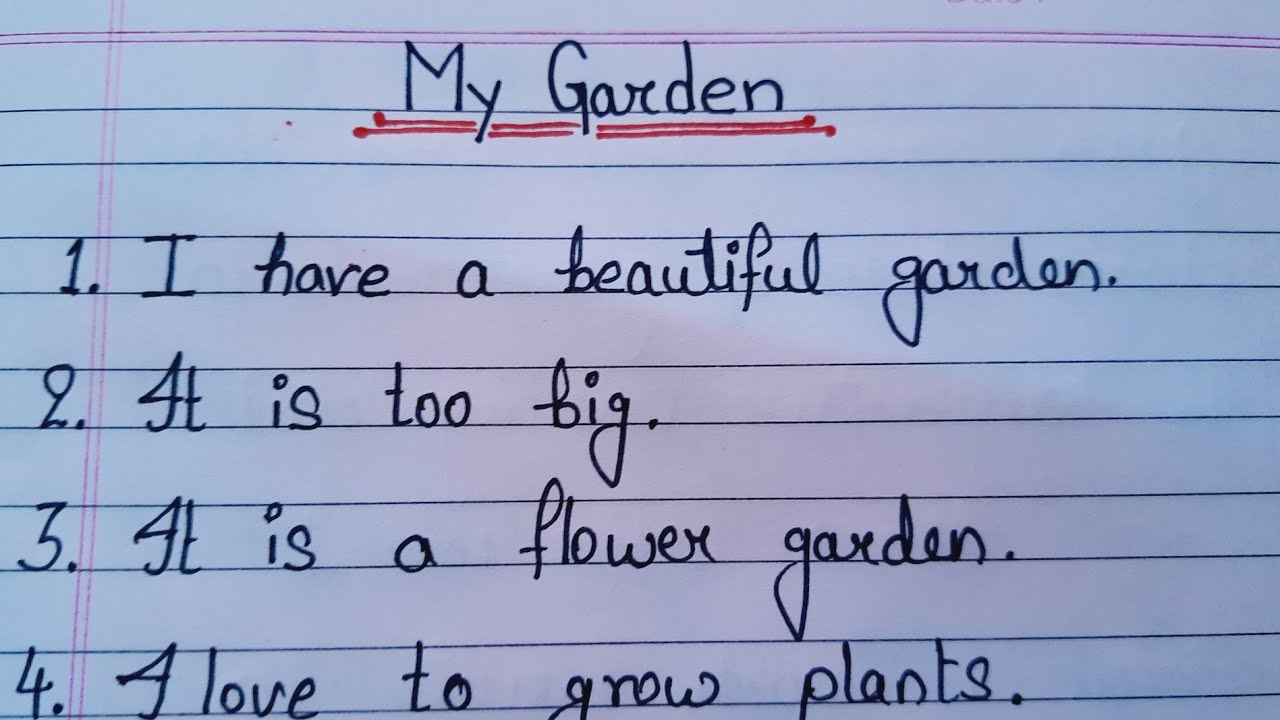 My Garden
1. I have a beautiful garden.
2. It is too big.
3. It is a flower garden.
4. I love to grow plants.